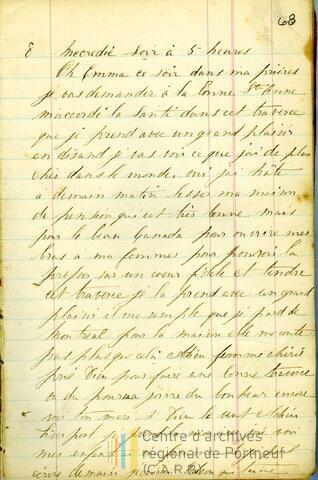 68
8 mecredie Soir à 5 heures
Oh Emma ce soir dans ma prières
je vas demander à la bonne Ste Anne
m'accordé la Santé dans cet traverce
que je prend avec un grand plaisir
en disand je vas voir ce que j'ai de plus
cher dans le monde. oui j'ai hâte
a demain matin lesser ma maison
de pension qui est très bonne mais
pour le beau Canada pour ouvrire mes
bras a ma femmes pour pouvoir la
presser sur un coeur fidele et tendre
cet traverce je la prend avec un grand
plaisir il me semple que je pard de
Montreal pour la maison elle me conte
pas plus que cela chère femme chérie
prie Dieu pour faire une bonne traverce
ou du pourra jouire du bonheur encore
voir ton mari si Dieu le veut
mes enfants
écrire demain
Centre d'archives
régional de Portneuf
(C.A.R.P.)